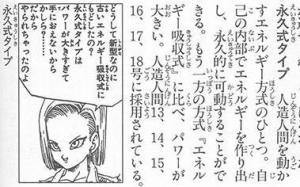 永久式タイプ 人造人間を動か
すエネルギー方式のひとつ。自
己の内部でエネルギーを作り出
し、永久的に可動することがで
きる。もう一つの方式『エネル
ギー吸収式』に比べ、パワーが
大きい。人造人間13、14、15、
16、17、18号に採用されている。
どうして新型なのに
古いエネルギー吸収式に
もどしたの?
永久式タイプは
パワーが大きすぎて
手におえないから
かしら?
だから
やられちゃったのよ
永久式タイプ